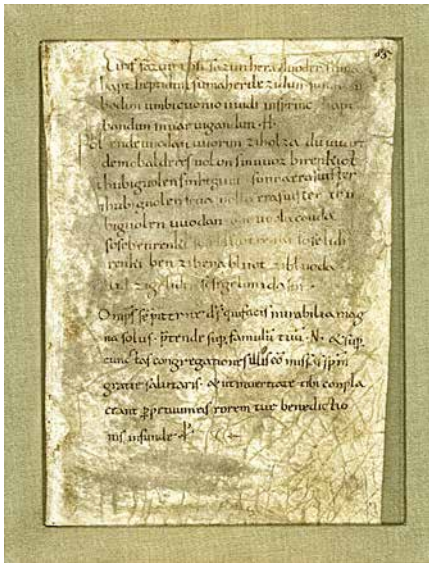 85
Eiris sazun idisi sazunheraduoder suma
hapt heptidun sumaherilezidun sumaclu
bodun umbicuoniouuidi insprinc hapt
bandun inuar uigandun· H·
Phol endeuuodan uuorun ziholza du uuart
demobalderes uolon sinuuoz birenkict
thubiguolen sinhtgunt· sunnaerasuister
thubiguolen friia uolla erasuister thu
biguolen uuodan sohe uuolaconda
sosebenrenki sose bluotrenki soselidi
renki ben zibena bluot zibluoda
lid zigeliden sosegelimida sin·
Omps sēpiterne ds̄ quifacis mirabilia mag
na solus· p̄tende sup̄ famulū tuū ·N· & sup̄
cunctas congregationes illis cōmissas sp̄m
gratie salutaris· & ut inueritate tibi conpla
ceant ꝑpetuum eis rorem tue benedictio
nis infunde· P